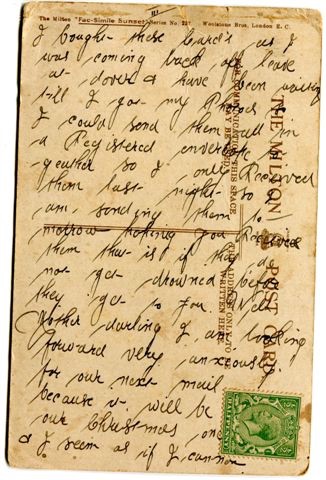 The Milton "Fac-Simile Sunset" Series No. 227 Woolstone Bros., London E. C.
I bought these Card's as I
was coming back off leave
at dover & have been waiting
till I got my Photos so
I could send them all in
a Registered envelope
together so I only Received
them last night so I
am sending them to
morrow hoping you Received
them that is if they do
not get drowned before
they get to you. Well
Mother darling I am looking
forward very anxously
for our next mail
because it will be
our Christmas one
& I seem as if I cannot
THE MILTON POST CARD
FOR COMMUNICATION THIS SPACE
MAY BE USED
THE ADDRESS ONLY TO BE
WRITTEN HERE